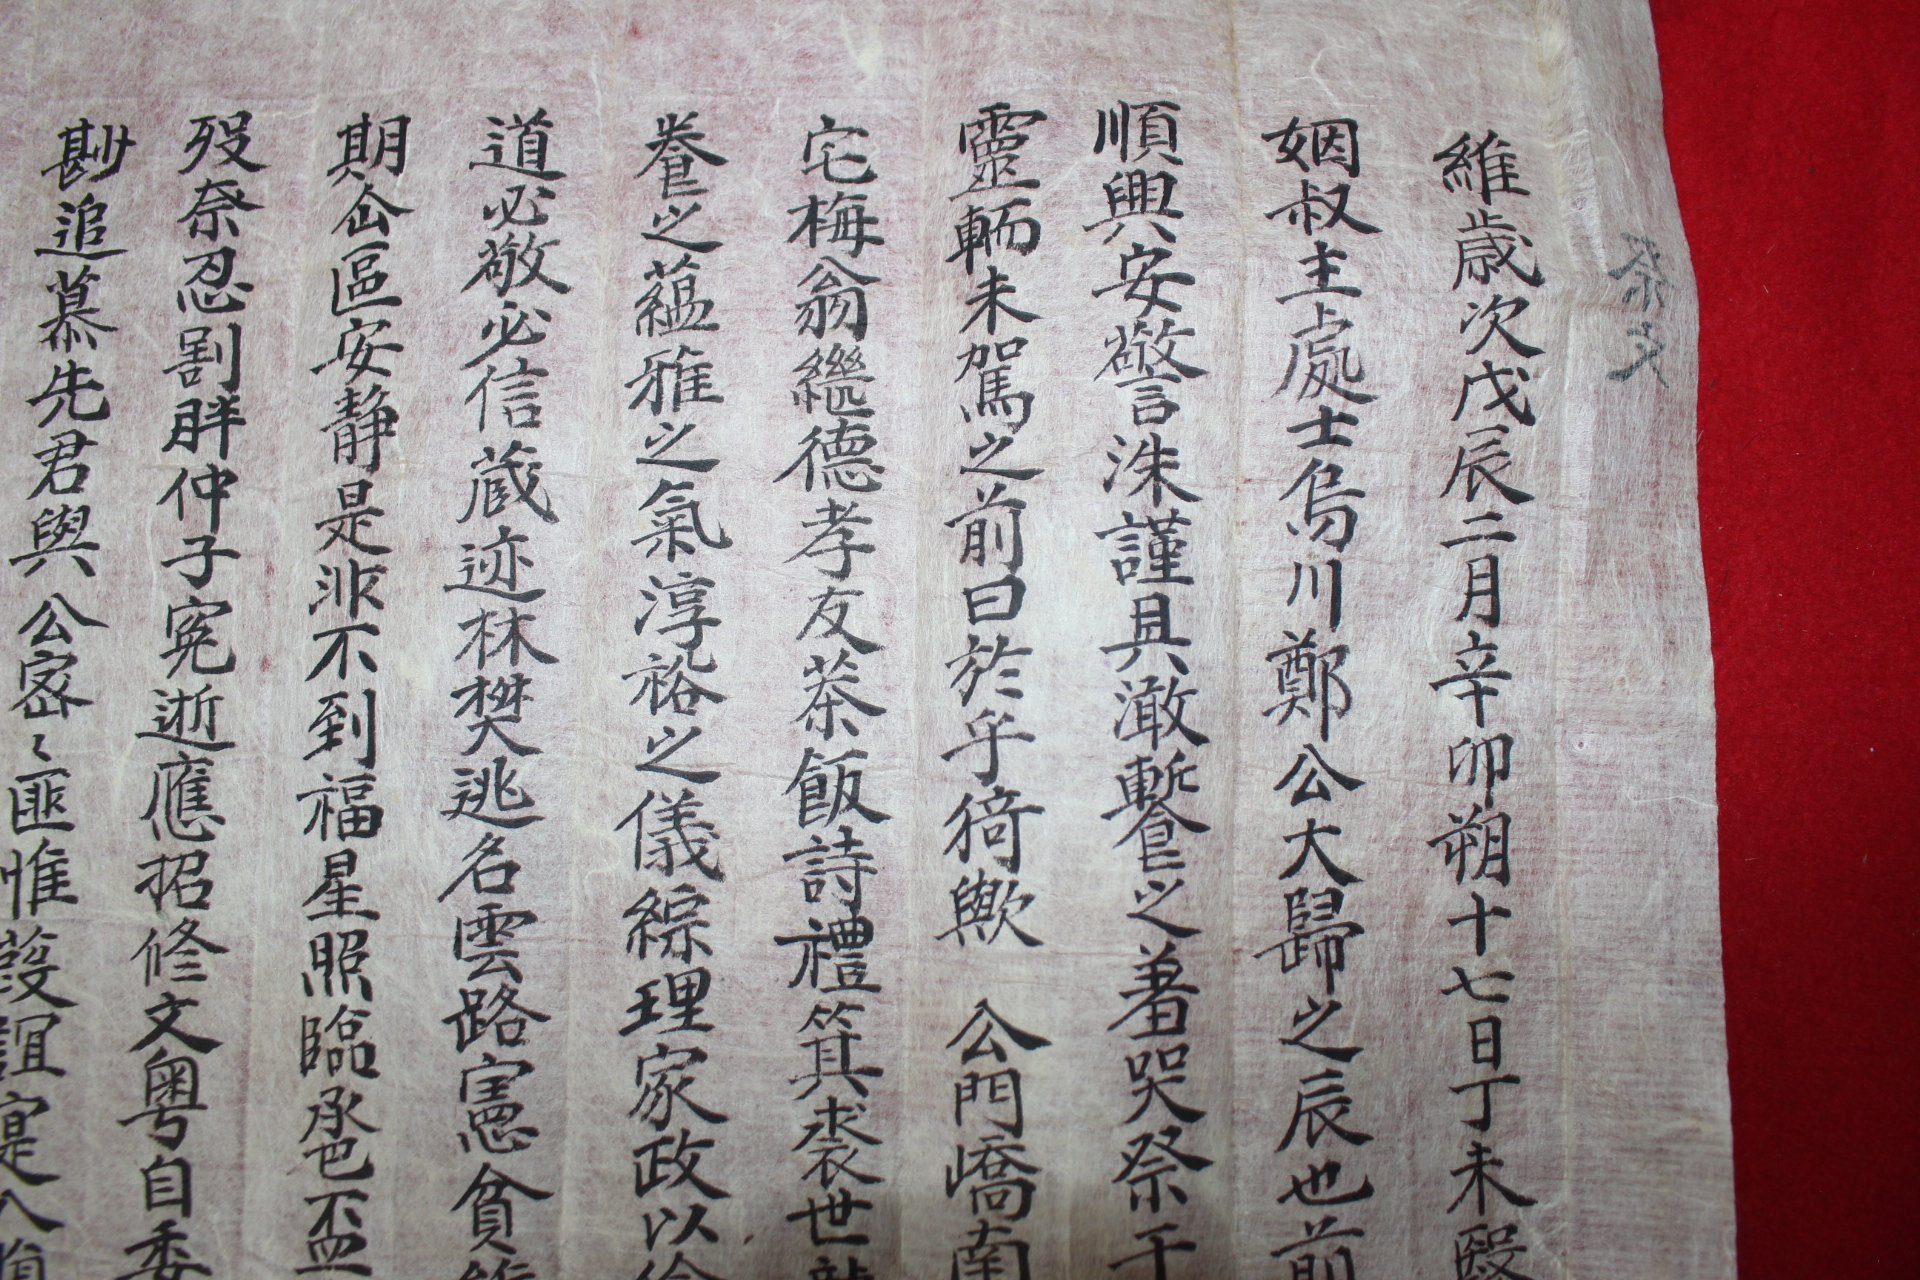 祭文
維歲次戊辰二月辛卯朔十七日丁未
姻叔主處士烏川鄭公大歸之辰也前
順興安䃁洙謹具澈蹔之羞哭祭于
靈輀未駕之前曰於乎猗歟 公門嶠南
宅梅翁繼德孝友茶飯詩禮箕裘世
養之蘊雅之氣淳裕之儀綜理家政以
道必敬必信藏迹林樊逃名雲路憲貧
期仚區安靜是非不到福星照臨承
歿奈忍割胖仲子寃逝應招修文粤自委
尠追慕先君與 公密〻匪惟葭誼寔